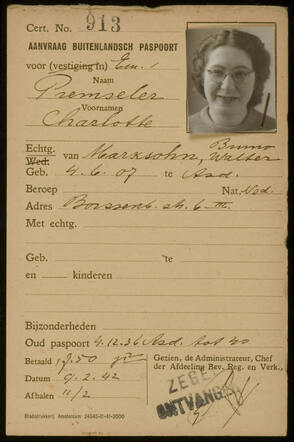 Cert. No. 913
AANVRAAG BUITENLANDSCH PASPOORT
voor (vestiging in) Em. 1
Naam
Premseler
Voornamen
Charlotte
Echtg. van Marksohn, Bruno Walter
Wed.
Geb. 4.6.07 te Asd.
Beroep Nat. Ned.
Adres Borssenb. str. 6 III
Met echtg.
Geb. te
en kinderen
Bijzonderheden
Oud paspoort 4.12.36 Asd. tot 40
Betaald f. 8.50
Datum 9.2.42
Afhalen 11/2
Gezien, de Administrateur, Chef
der Afdeeling Bev. Reg. en Verk.,
ZEGEL
ONTVANGEN
Stadsdrukkerij Amsterdam 24545-11-41-2000